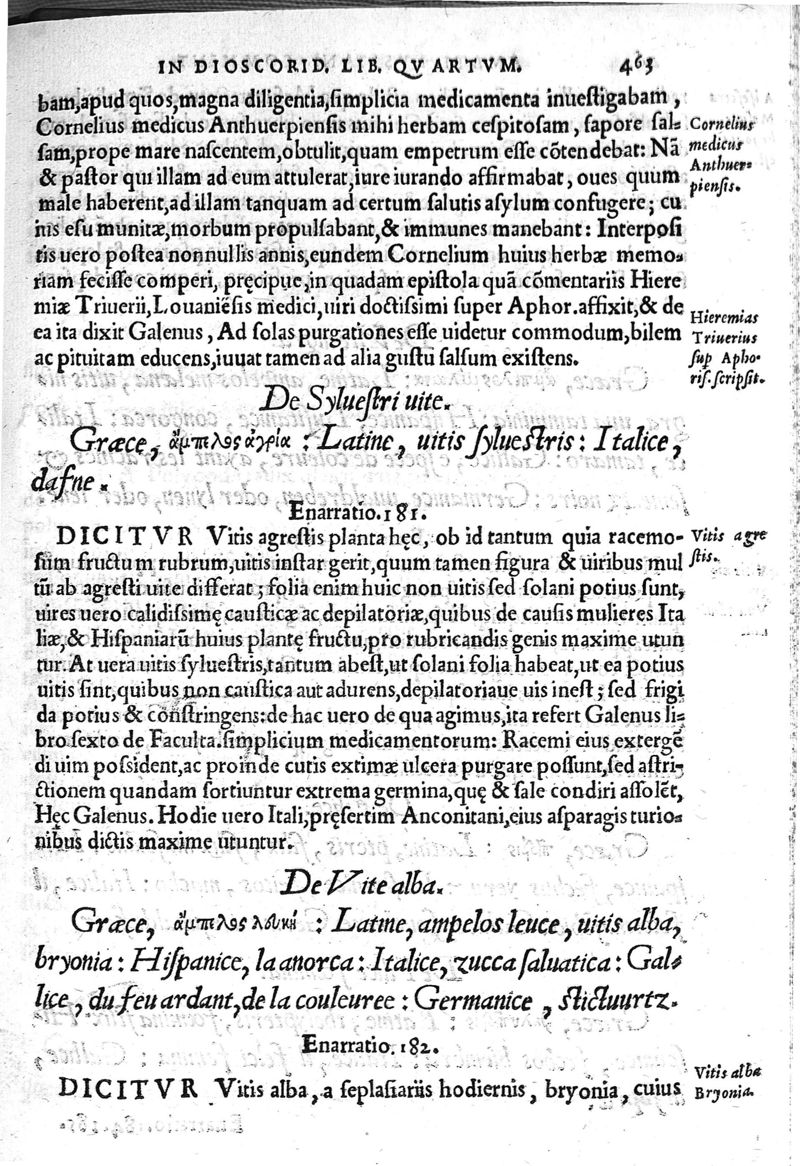 IN DIOSCORID. LIB. QVARTVM. 463
bam,apud quos,magna diligentia,ſimplicia medicamenta inueſtigabam,
Cornelius medicus Anthuerpienſis mihi herbam ceſpitoſam, ſapore ſal-
ſam,prope mare naſcentem,obtulit,quam empetrum eſſe cõtendebat: Nã
& paſtor qui illam ad eum attulerat,iure iurando affirmabat, oues quum
male haberent,ad illam tanquam ad certum ſalutis aſylum confugere; cu
ius eſu munitæ,morbum propulſabant,& immunes manebant: Interpoſi
tis uero poſtea nonnullis annis,eundem Cornelium huius herbæ memo-
riam feciſſe comperi, pręcipue,in quadam epiſtola quã cõmentariis Hiere
miæ Triuerii,Louaniẽſis medici,uiri doctiſſimi ſuper Aphor.affixit,& de
ea ita dixit Galenus, Ad ſolas purgationes eſſe uidetur commodum,bilem
ac pituitam educens,iuuat tamen ad alia guſtu ſalſum exiſtens.
Cornelius
medicus
Anthuer-
pienſis.
Hieremias
Triuerius
ſup Apho-
riſ. ſcripſit.
De Sylueſtri uite.
Græce, ἄμπελος ἀγρία : Latine, uitis ſylueſtris: Italice,
dafne.
Enarratio.181.
DICITVR Vitis agreſtis planta hęc, ob id tantum quia racemo-
ſum fructum rubrum,uitis inſtar gerit,quum tamen figura & uiribus mul
tũ ab agreſti uite differat; folia enim huic non uitis ſed ſolani potius ſunt,
uires uero calidiſſimę cauſticæ ac depilatoriæ,quibus de cauſis mulieres Ita
liæ,& Hiſpaniarũ huius plantę fructu,pro rubricandis genis maxime utun
tur. At uera uitis ſylueſtris,tantum abeſt,ut ſolani folia habeat,ut ea potius
uitis ſint,quibus non cauſtica aut adurens,depilatoriaue uis ineſt; ſed frigi
da potius & conſtringens:de hac uero de qua agimus,ita refert Galenus li-
bro ſexto de Faculta.ſimplicium medicamentorum: Racemi eius extergẽ
di uim poſſident,ac proinde cutis extimæ ulcera purgare poſſunt,ſed aſtri-
ctionem quandam ſortiuntur extrema germina,quę & ſale condiri aſſolẽt,
Hęc Galenus. Hodie uero Itali,pręſertim Anconitani,eius aſparagis turio-
nibus dictis maxime utuntur.
Vitis agre
ſtis.
De Vite alba.
Græce, ἄμπελος λευκή : Latine, ampelos leuce, uitis alba,
bryonia: Hiſpanice, la anorca: Italice, zucca ſaluatica: Gal-
lice, du feu ardant, de la couleuree: Germanice, ſtictuurtz.
Enarratio.182.
DICITVR Vitis alba, a ſeplaſiariis hodiernis, bryonia, cuius
Vitis alba
Bryonia.